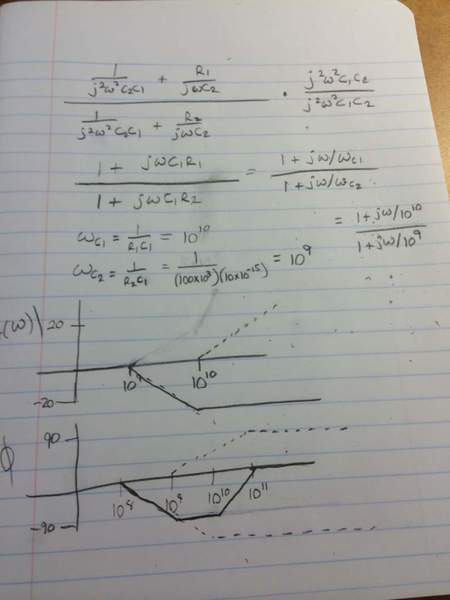 1/(j²ω²C₂C₁) + R₁/(jωC₂)
──────────────── · j²ω²C₁C₂/(j²ω²C₁C₂)
1/(j²ω²C₂C₁) + R₂/(jωC₂)
(1 + jωC₁R₁)/(1 + jωC₁R₂) = (1 + jω/ω_C₁)/(1 + jω/ω_C₂)
ω_C₁ = 1/(R₁C₁) = 10¹⁰
= (1 + jω/10¹⁰)/(1 + jω/10⁹)
ω_C₂ = 1/(R₂C₁) = 1/((100×10³)(10×10⁻¹⁵)) = 10⁹
(ω)| 20
10 10¹⁰
-20
90
ϕ
10⁸ 10⁹ 10¹⁰ 10¹¹
-90